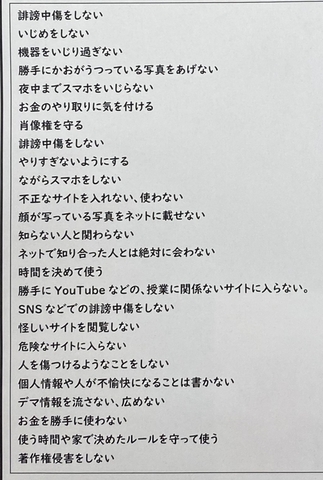 誹謗中傷をしない
いじめをしない
機器をいじり過ぎない
勝手にかおがうつっている写真をあげない
夜中までスマホをいじらない
お金のやり取りに気を付ける
肖像権を守る
誹謗中傷をしない
やりすぎないようにする
ながらスマホをしない
不正なサイトを入れない、使わない
顔が写っている写真をネットに載せない
知らない人と関わらない
ネットで知り合った人とは絶対に会わない
時間を決めて使う
勝手にYouTubeなどの、授業に関係ないサイトに入らない。
SNSなどでの誹謗中傷をしない
怪しいサイトを閲覧しない
危険なサイトに入らない
人を傷つけるようなことをしない
個人情報や人が不愉快になることは書かない
デマ情報を流さない、広めない
お金を勝手に使わない
使う時間や家で決めたルールを守って使う
著作権侵害をしない